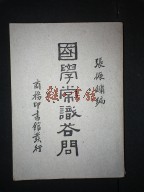 張振鏞編
國學常識答問
商務印書館發行